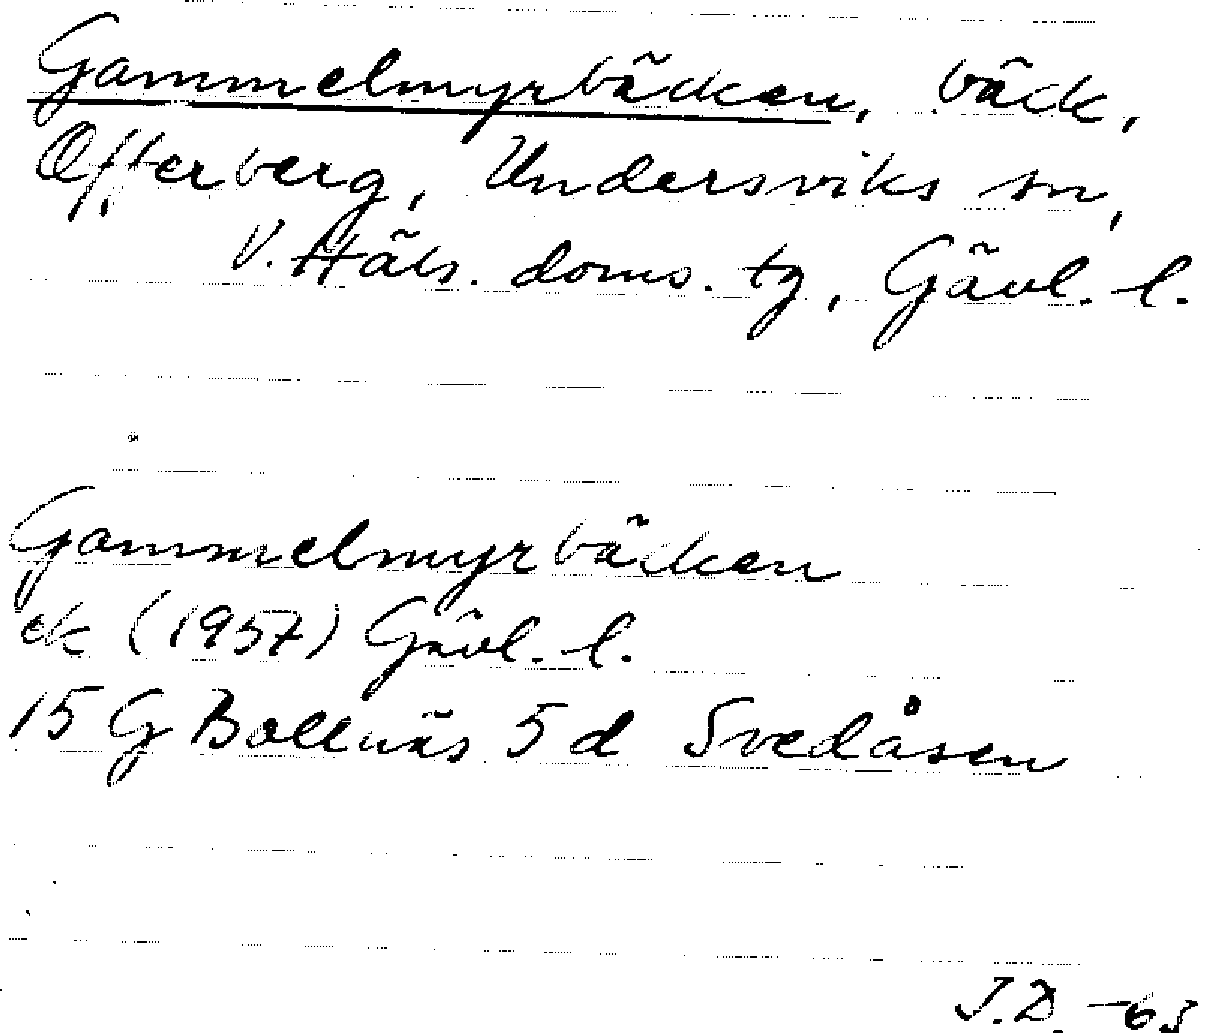 Gammelmyrbäcken, bäck,
Offerberg, Undersviks sn,
V. Häls. doms. tg, Gävl. l.
Gammelmyrbäcken
ek (1957) Gävl. l.
15 G Bollnäs 5 d Svedåsen
J.D. -63